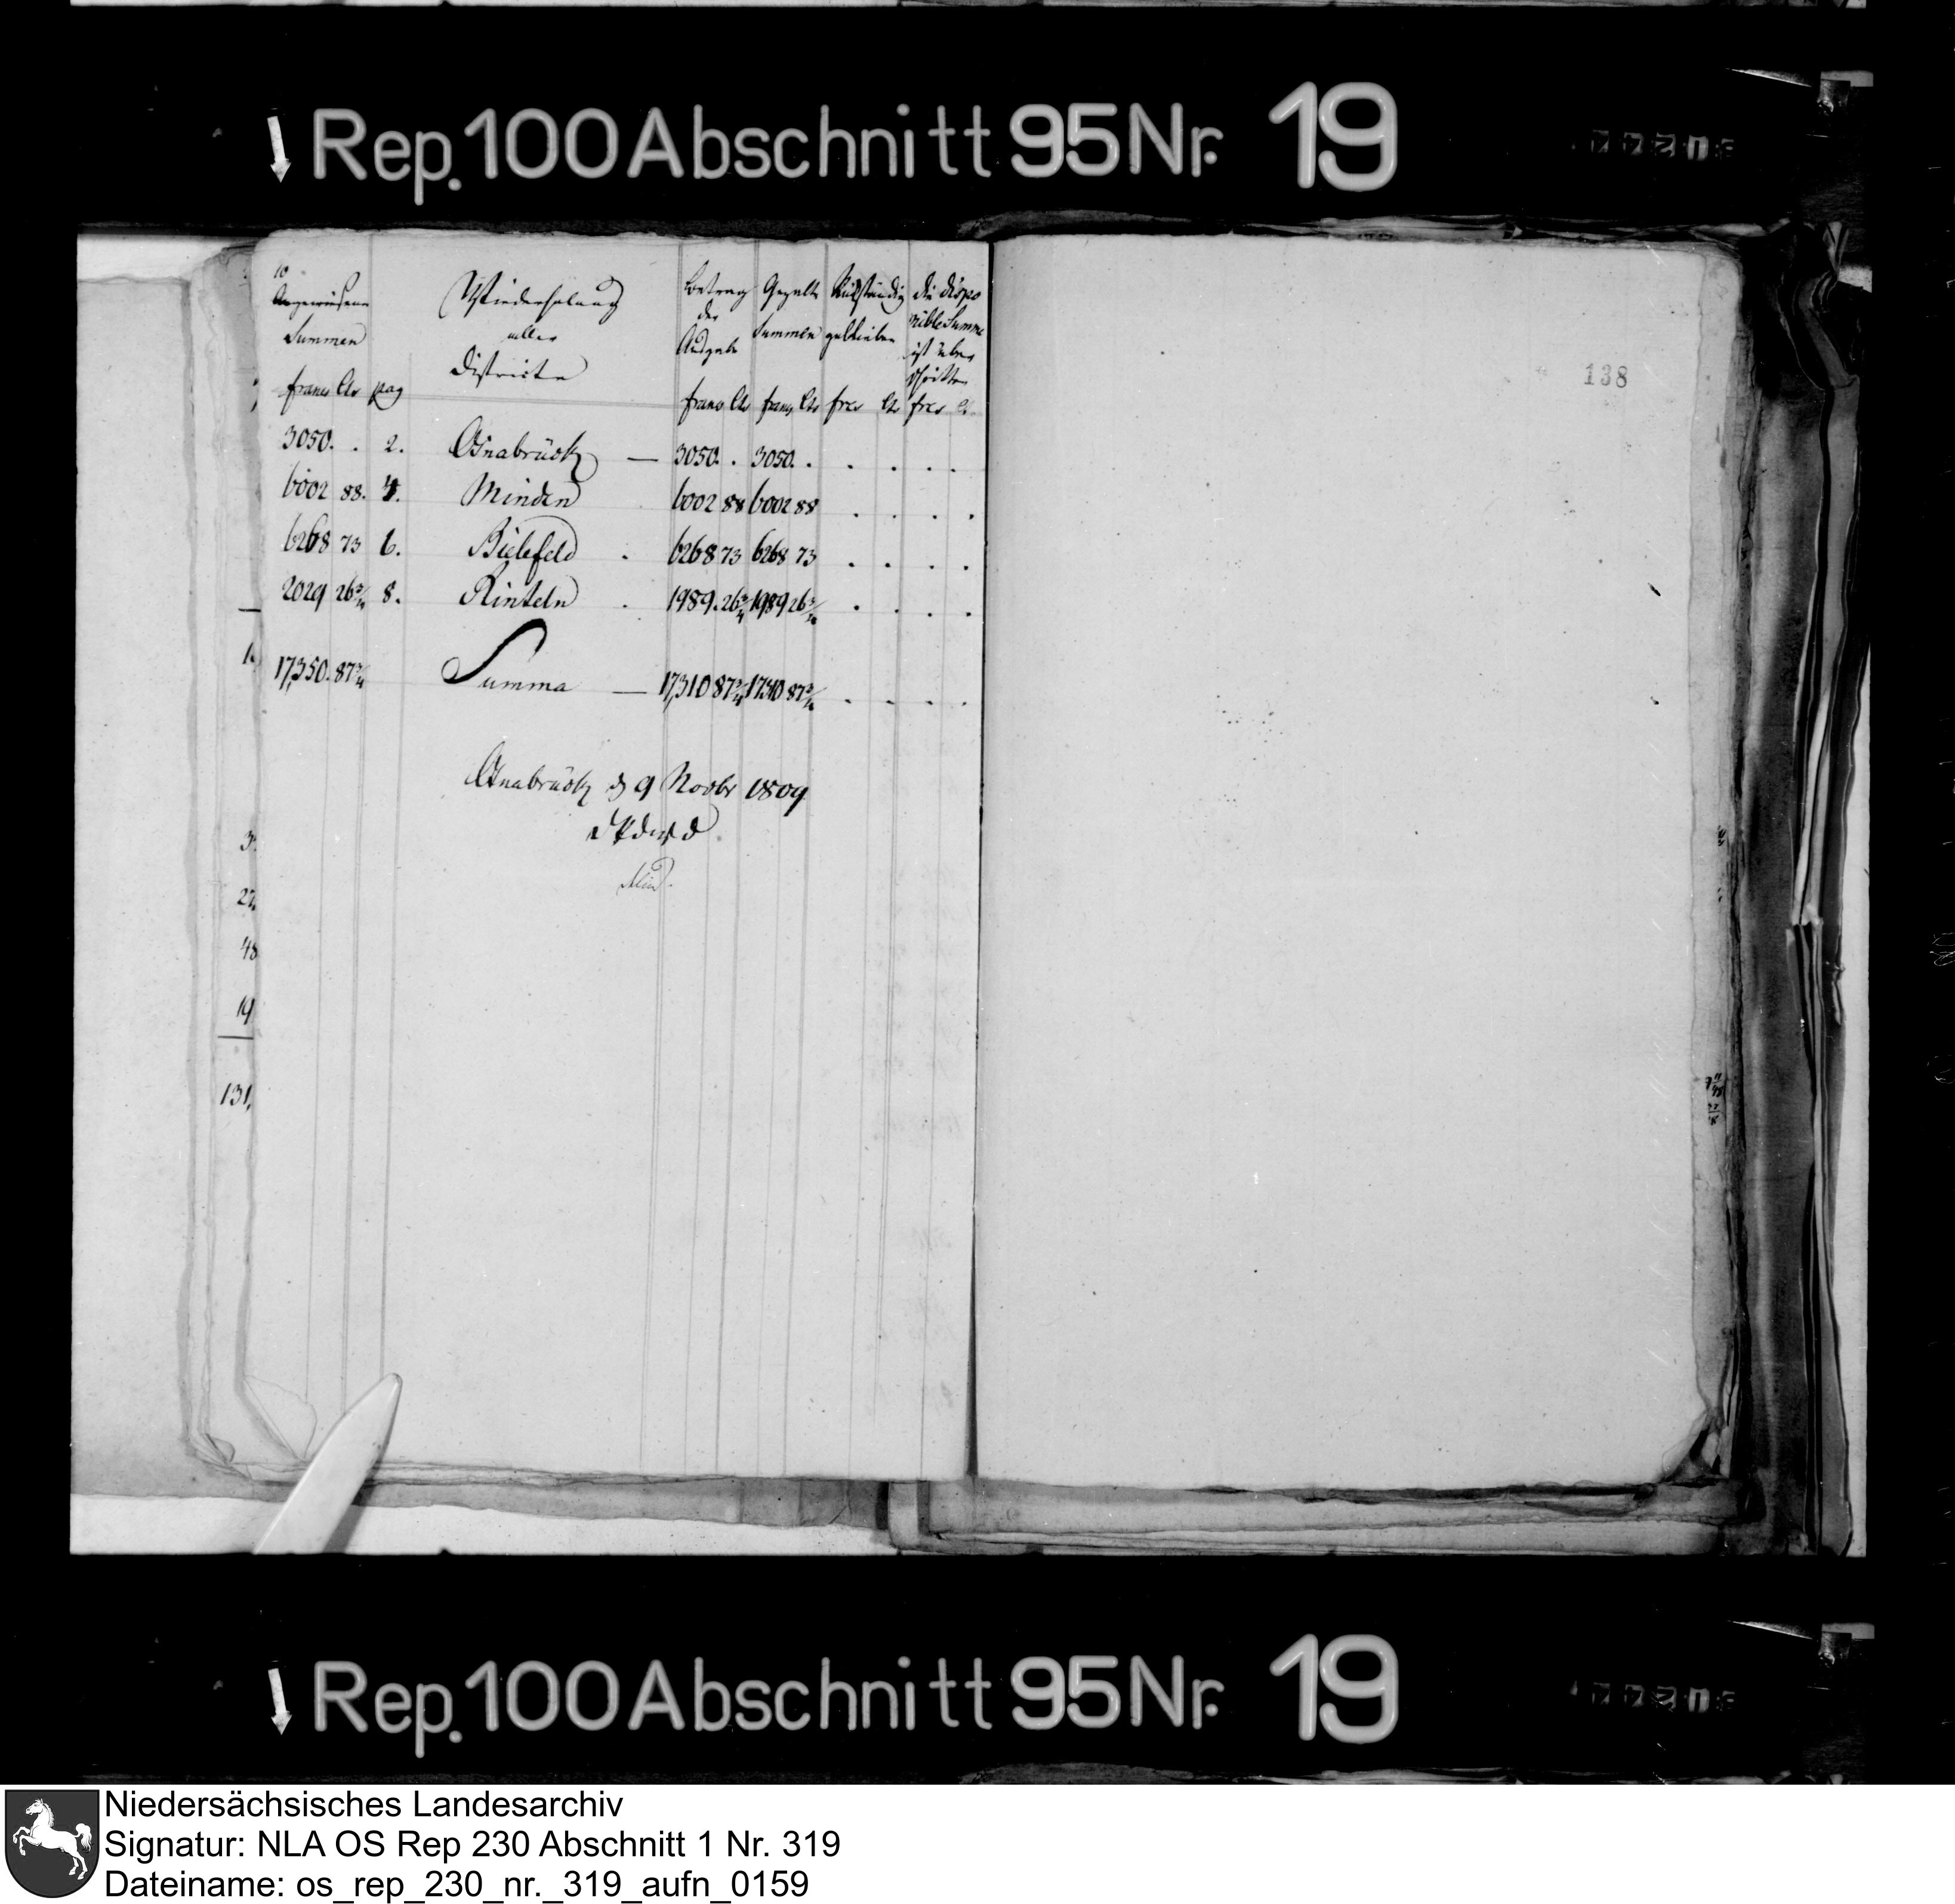 Rep. 100 Abschnitt 95 Nr. 19
10
Angewiesene
Summen
francs Cts pag
Wiederholung
aller
Districte
Betrag
der
Ausgabe
francs Cts
Gezalte
Summen
francs Cts
Rückständig
geblieben
frcs Cts
die dispo
nible Summe
ist über
schritten
frcs Cts
138
3050. . 2. Osnabrück — 3050. . 3050. . . . . .
6002 88. 4. Minden 6002 88 6002 88 . . . .
6268 73 6. Bielefeld . 6268 73 6268 73 . . . .
2029 26 3/4 8. Rinteln . 1989. 26 3/4 1989 26 3/4 . . . .
17,350. 87 3/4 Summa — 17,310 87 3/4 17310 87 3/4 . . . .
Osnabrück d 9 Novbr 1809
3
22
48
19
131,
Rep. 100 Abschnitt 95 Nr. 19
Niedersächsisches Landesarchiv
Signatur: NLA OS Rep 230 Abschnitt 1 Nr. 319
Dateiname: os_rep_230_nr._319_aufn_0159